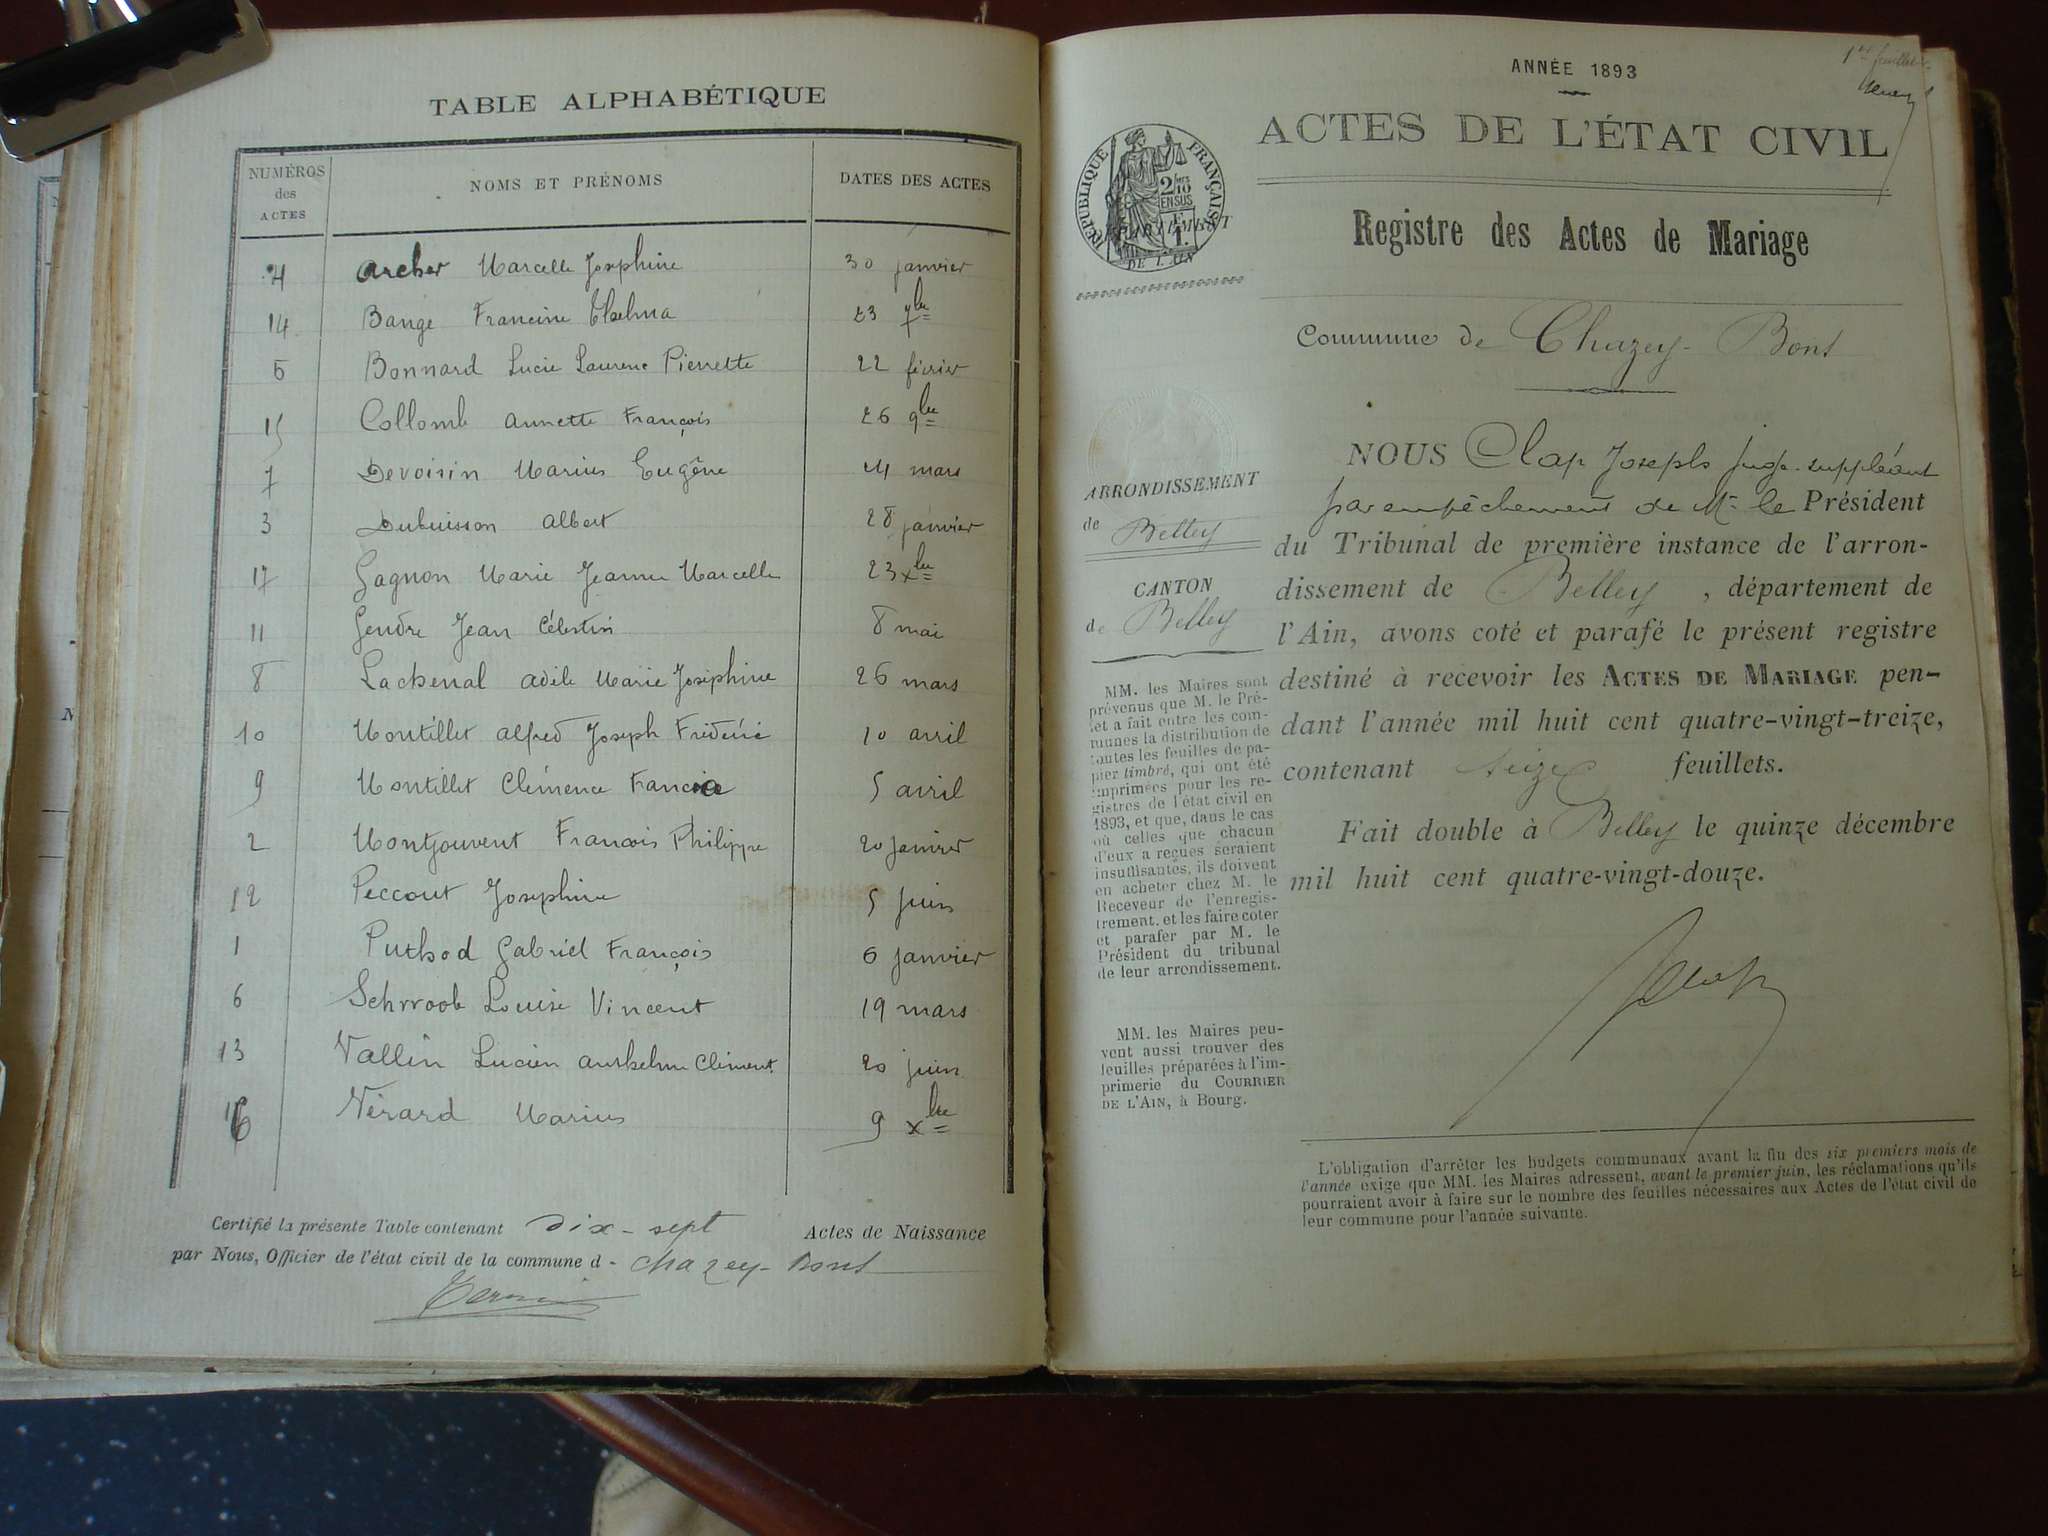 TABLE ALPHABÉTIQUE
NUMÉROS des ACTES NOMS ET PRÉNOMS DATES DES ACTES
4 Archer Marcelle Josephine 30 janvier
14 Bange Francine Thelma 23 7bre
5 Bonnard Lucie Laurence Pierrette 22 février
15 Collomb Annette François 26 9bre
7 Devoisin Marius Eugêne 4 mars
3 Dubuisson Albert 28 janvier
17 Gagnon Marie Jeanne Marcelle 23 xbre
11 Gendre Jean Célestin 8 mai
8 Lachenal Adèle Marie Joséphine 26 mars
10 Montillet Alfred Joseph Fréderic 10 avril
9 Montillet Clémence 5 avril
2 Montjouvent Francois Philippe 20 janvier
12 Peccout Josephine 5 juin
1 Puthod Gabriel François 6 janvier
6 Louise Vincent 19 mars
13 Vallin Lucien Anthelme Clément 20 juin
16 Nérard Marius 9 xbre
Certifié la présente Table contenant dix-sept Actes de Naissance
par Nous, Officier de l'état civil de la commune d - Chazey-Bons
1er feuillet
ANNÉE 1893
ACTES DE L'ÉTAT CIVIL
RÉPUBLIQUE FRANÇAISE
2 10
EN SUS
1 F.
DÉPARTEMENT
DE L'AIN
Registre des Actes de Mariage
Commune de Chazey-Bons
ARRONDISSEMENT
de Belley
CANTON
de Belley
MM. les Maires sont
prévenus que M. le Pré-
fet a fait entre les com-
munes la distribution de
toutes les feuilles de pa-
pier timbré, qui ont été
imprimées pour les re-
gistres de l'état civil en
1893, et que, dans le cas
où celles que chacun
d'eux a reçues seraient
insuffisantes, ils doivent
en acheter chez M. le
Receveur de l'enregis-
trement, et les faire coter
et parafer par M. le
Président du tribunal
de leur arrondissement.
MM. les Maires peu-
vent aussi trouver des
feuilles préparées à l'im-
primerie du COURRIER
DE L'AIN, à Bourg.
NOUS Clap Joseph juge-suppléant
par empêchement de Mr le Président
du Tribunal de première instance de l'arron-
dissement de Belley, département de
l'Ain, avons coté et parafé le présent registre
destiné à recevoir les ACTES DE MARIAGE pen-
dant l'année mil huit cent quatre-vingt-treize,
contenant seize feuillets.
Fait double à Belley le quinze décembre
mil huit cent quatre-vingt-douze.
L'obligation d'arrêter les budgets communaux avant la fin des six premiers mois de
l'année exige que MM. les Maires adressent, avant le premier juin, les réclamations qu'ils
pourraient avoir à faire sur le nombre des feuilles nécessaires aux Actes de l'état civil de
leur commune pour l'année suivante.